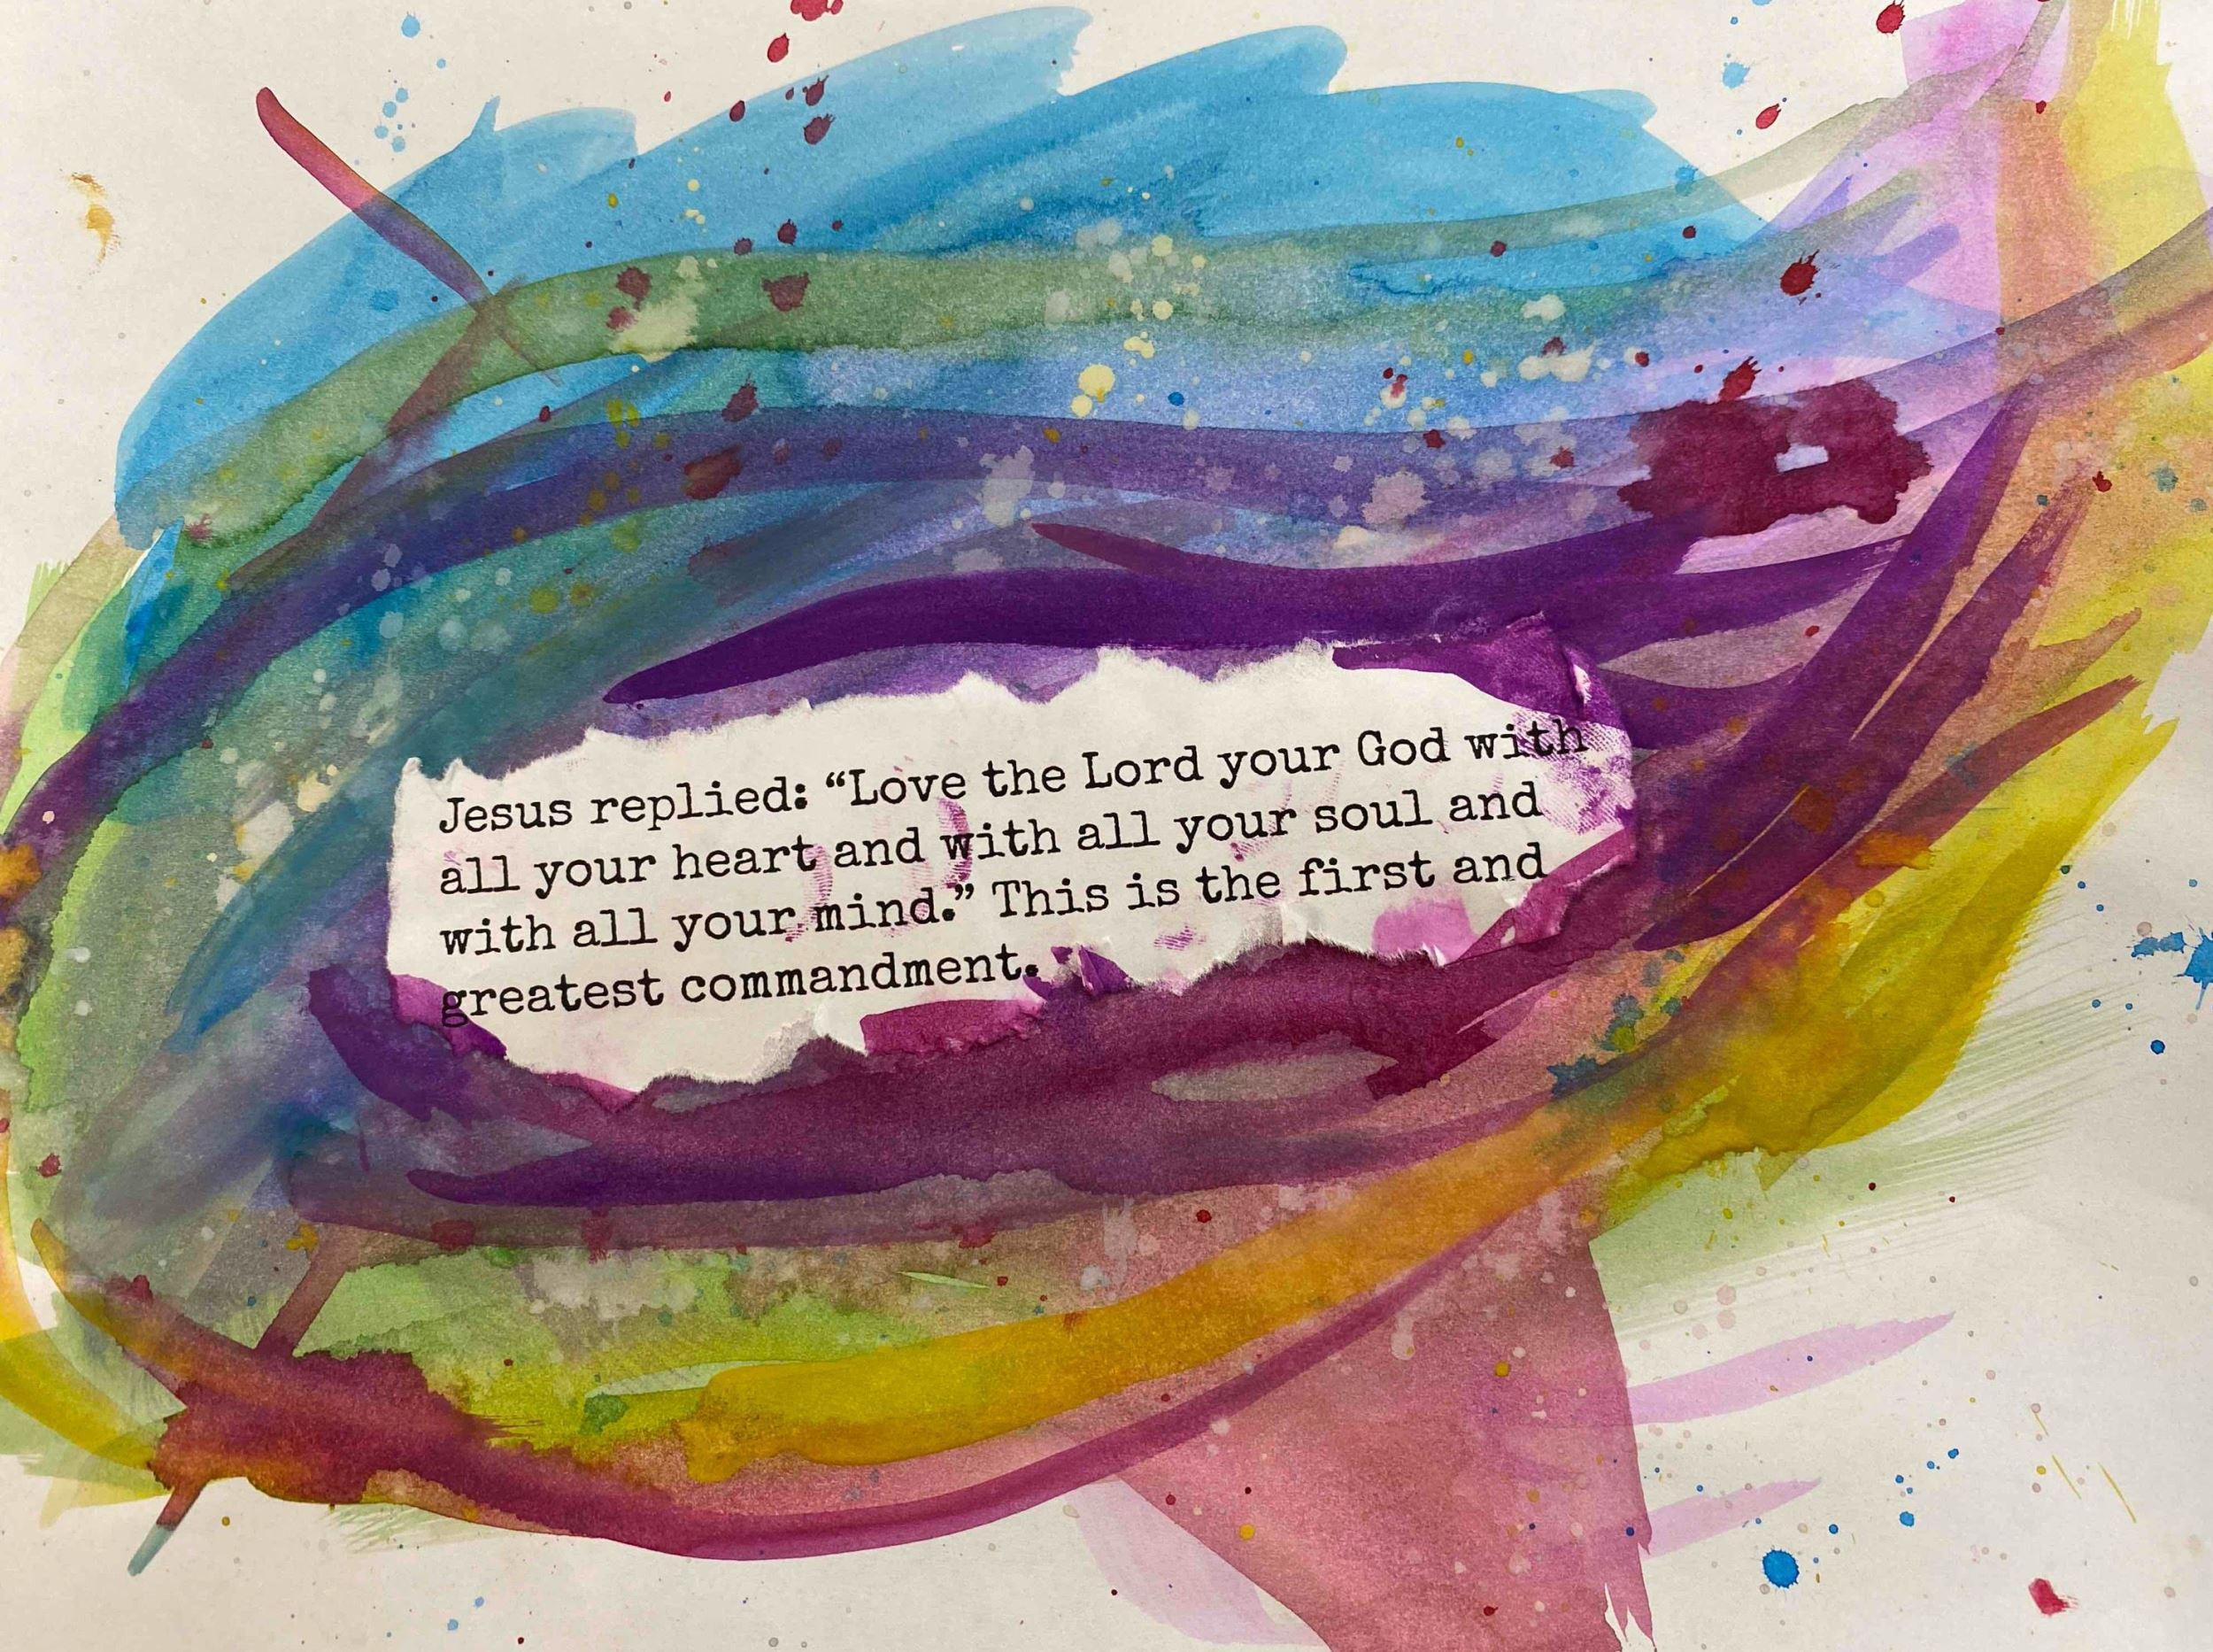 Jesus replied: “Love the Lord your God with
all your heart and with all your soul and
with all your mind.” This is the first and
greatest commandment.